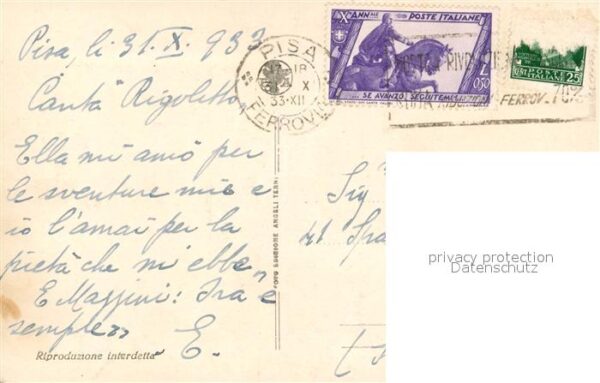 Pisa, li 31.X.933
Canta Rigoletto,
Ella mi amò per
le sventure mie e
io l'amai per la
pietà che m'ebbe,
E Mazzini: Ira e
sempre,,
E.
Riproduzione interdetta
EDIZIONE ANGELI TERNI
X° ANNALE POSTE ITALIANE
L. 0,50
SE AVANZO, SEGUITEMI
PISA
18
X
33-XII
FERROVIA
POSTE
ITALIANE 25
FERROV.
Sig
41
privacy protection
Datenschutz